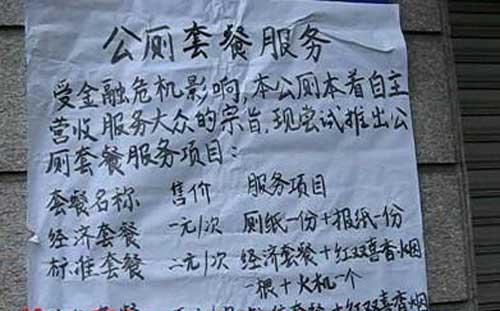 公厕套餐服务
受金融危机影响,本公厕本着自主
营收服务大众的宗旨,现尝试推出公
厕套餐服务项目:
套餐名称 售价 服务项目
经济套餐 一元/次 厕纸一份+报纸一份
标准套餐 二元/次 经济套餐+红双喜香烟
一根+火机一个
套餐+红双喜香烟